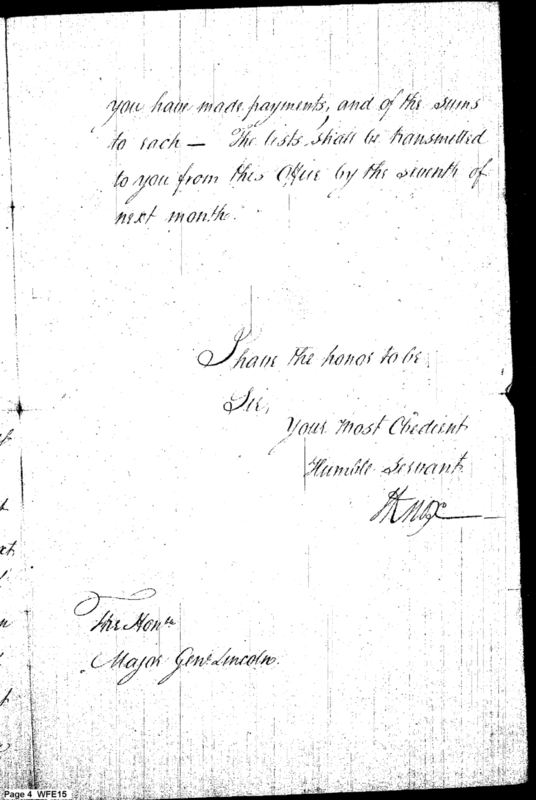 you have made payments, and of the sums
to each — The lists shall be transmitted
to you from this Office by the seventh of
next month.
I have the honor to be,
Sir,
Your Most Obedient
Humble Servant
HKnox
The Honle
Major Genl Lincoln.
Page 4 WFE15